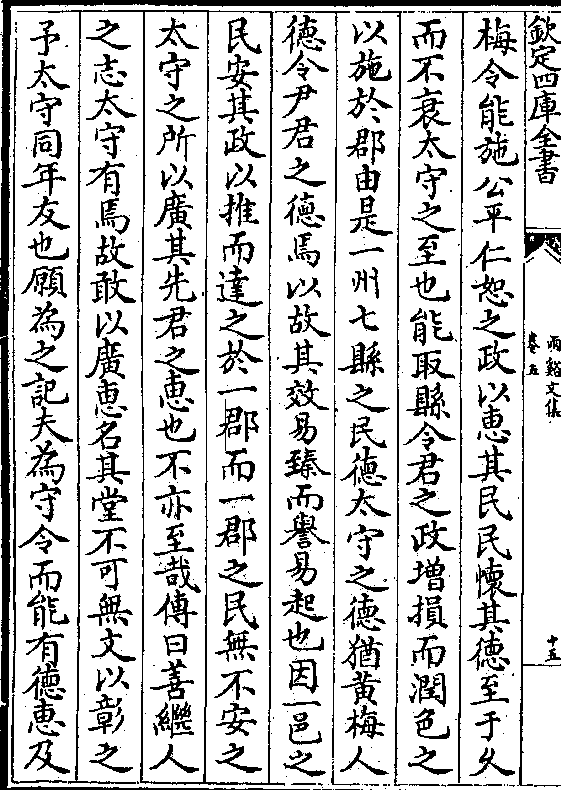 欽定四庫全書
兩谿文集
卷五
十五
梅令能施公平仁恕之政以惠其民民懷其德至于久
而不衰太守之至也能取縣令君之政增損而潤色之
以施於郡由是一州七縣之民德太守之德猶黃梅人
德令尹君之德焉以故其效易臻而譽易起也因一邑之
民安其政以推而達之於一郡而一郡之民無不安之
太守之所以廣其先君之惠也不亦至哉傳曰善繼人
之志太守有焉故敢以廣惠名其堂不可無文以彰之
予太守同年友也願為之記夫為守令而能有德惠及